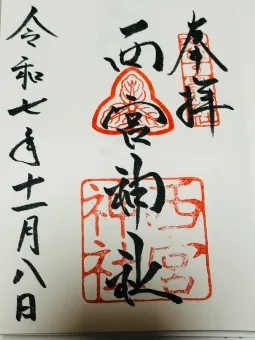 奉拝
西宮神社
西宮神社
令和七年十一月八日